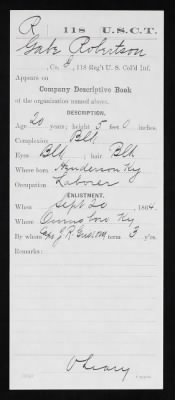 R | 118 U.S.C.T.
Gabe Robertson
, Co. I, 118 Reg't U. S. Col'd Inf.
Appears on
Company Descriptive Book
of the organization named above.
DESCRIPTION.
Age 20 years; height 5 feet 0 inches.
Complexion Blk
Eyes Blk; hair Blk
Where born Henderson Ky
Occupation Laborer
ENLISTMENT.
When Sept 20, 1864
Where Owensboro Ky
By whom Capt J. R. term 3 y'rs.
Remarks:
O'Leary
Copyist.